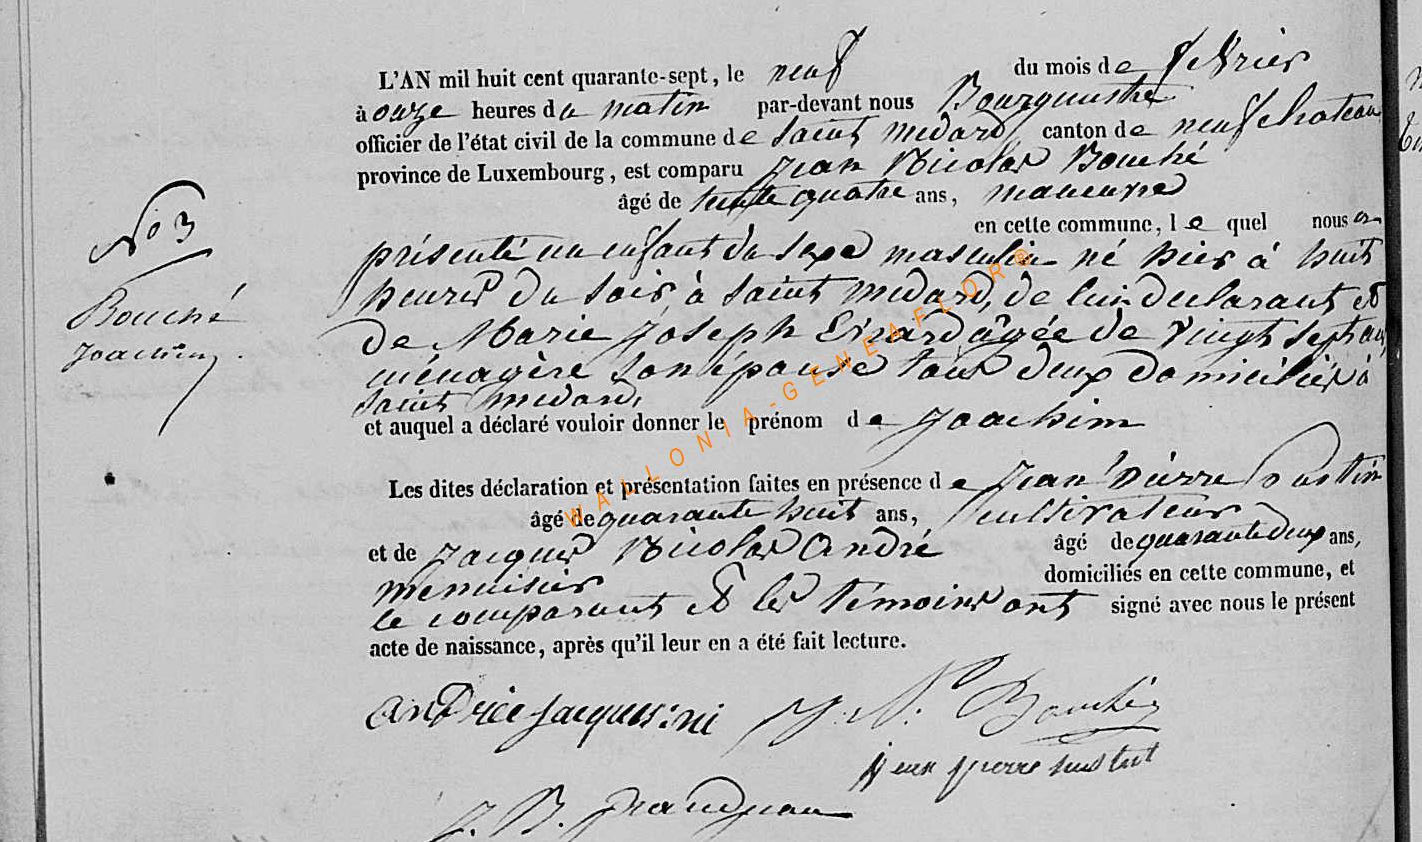 N° 3
Bouché
Joachim.
L'AN mil huit cent quarante-sept, le neuf du mois de février
à onze heures du matin par-devant nous Bourgmestre
officier de l'état civil de la commune de Saint Médard canton de neufchateau
province de Luxembourg, est comparu Jean Nicolas Bouché
âgé de trente quatre ans, manœuvre
en cette commune, le quel nous a
présenté un enfant du sexe masculin né hier à huit
heures du soir à Saint Médard, de lui déclarant et
de Marie Joseph Evrard âgée de vingt sept ans
ménagère son épouse tous deux domiciliés à
Saint Médard,
et auquel a déclaré vouloir donner le prénom de Joachim
Les dites déclaration et présentation faites en présence de Jean Pierre
âgé de quarante huit ans, cultivateur
et de Jacques Nicolas André âgé de quarante deux ans,
menuisier domiciliés en cette commune, et
le comparant et les témoins ont signé avec nous le présent
acte de naissance, après qu'il leur en a été fait lecture.
J. N. Bouché
jean pierre
J. B.
WALLONIA-GENEAFLORE